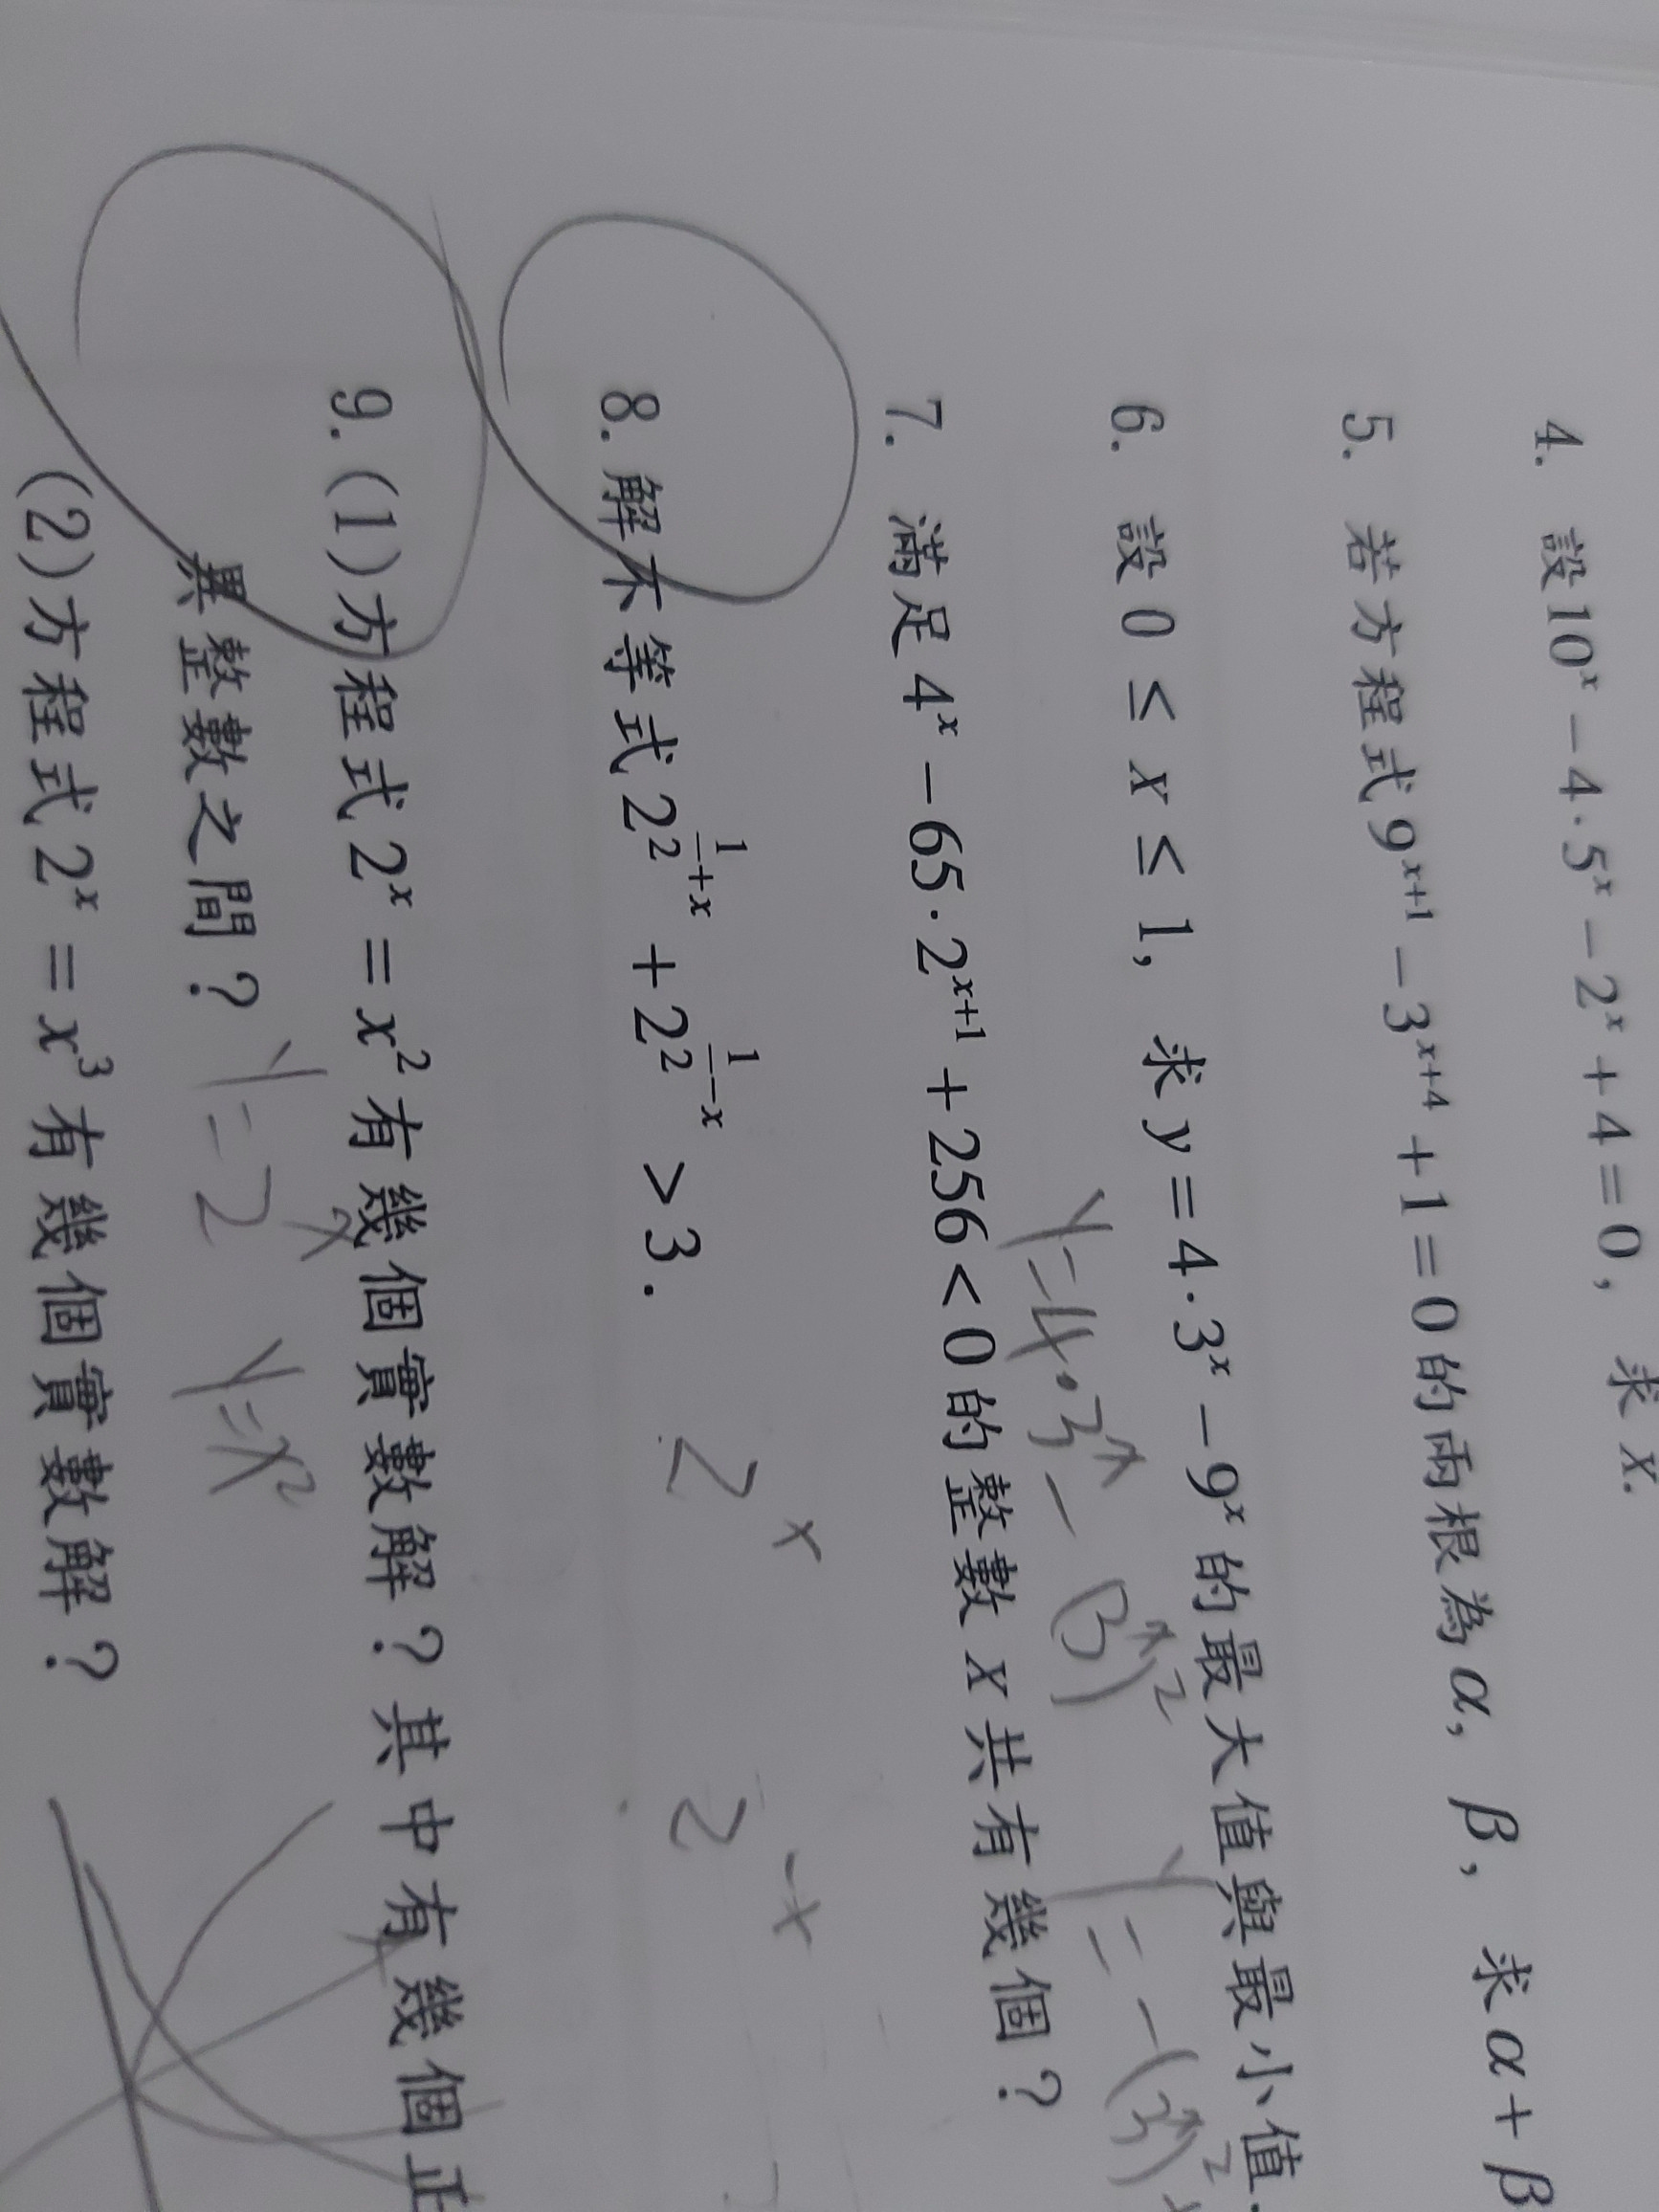 4. 設 10^x − 4·5^x − 2^x + 4 = 0, 求 x.
5. 若方程式 9^{x+1} − 3^{x+4} + 1 = 0 的兩根為 α, β, 求 α + β
6. 設 0 ≤ x ≤ 1, 求 y = 4·3^x − 9^x 的最大值與最小值.
y = 4·3^x − (3^x)^2 y = −(3^x)^2
7. 滿足 4^x − 65·2^{x+1} + 256 < 0 的整數 x 共有幾個？
8. 解不等式 2^{\frac{1}{2}+x} + 2^{\frac{1}{2}−x} > 3.
2^x 2^{-x}
9. (1)方程式 2^x = x^2 有幾個實數解？其中有幾個正
異整數之間？
y = 2^x y = x^2
(2)方程式 2^x = x^3 有幾個實數解？